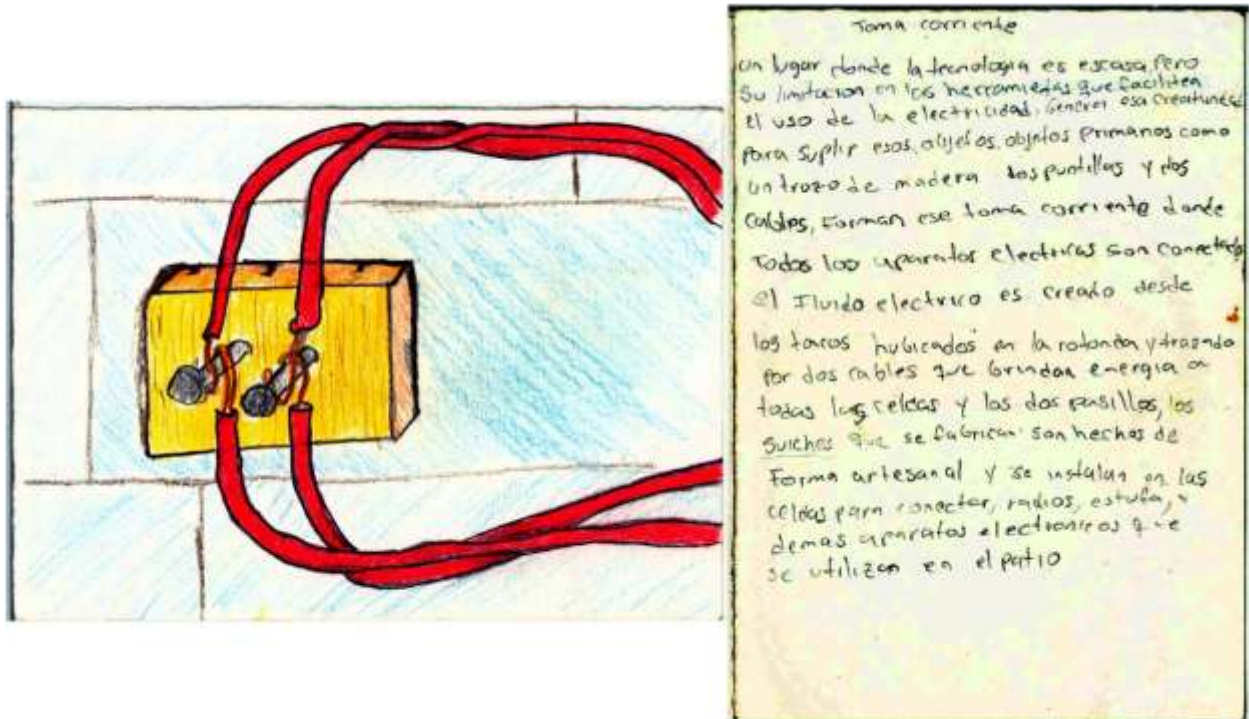 Toma corriente
un lugar donde la tecnologia es escasa, Pero
su limitacion en las herramientas que faciliten
el uso de la electricidad. Generan esa
para suplir esos objetos, objetos primarios como
un trozo de madera dos puntillas y dos
cables, Forman ese toma corriente donde
Todos los aparatos electricos son conectados
el Fluido electrico es creado desde
los tacos hubicados en la rotonda y traendo
Por dos cables que brindan energia a
todas las celdas y los dos pasillos, los
suiches que se fabrican son hechos de
Forma artesanal y se instalan en las
celdas para conectar, radios, estufa, y
demas aparatos electronicos que
se utilizan en el patio